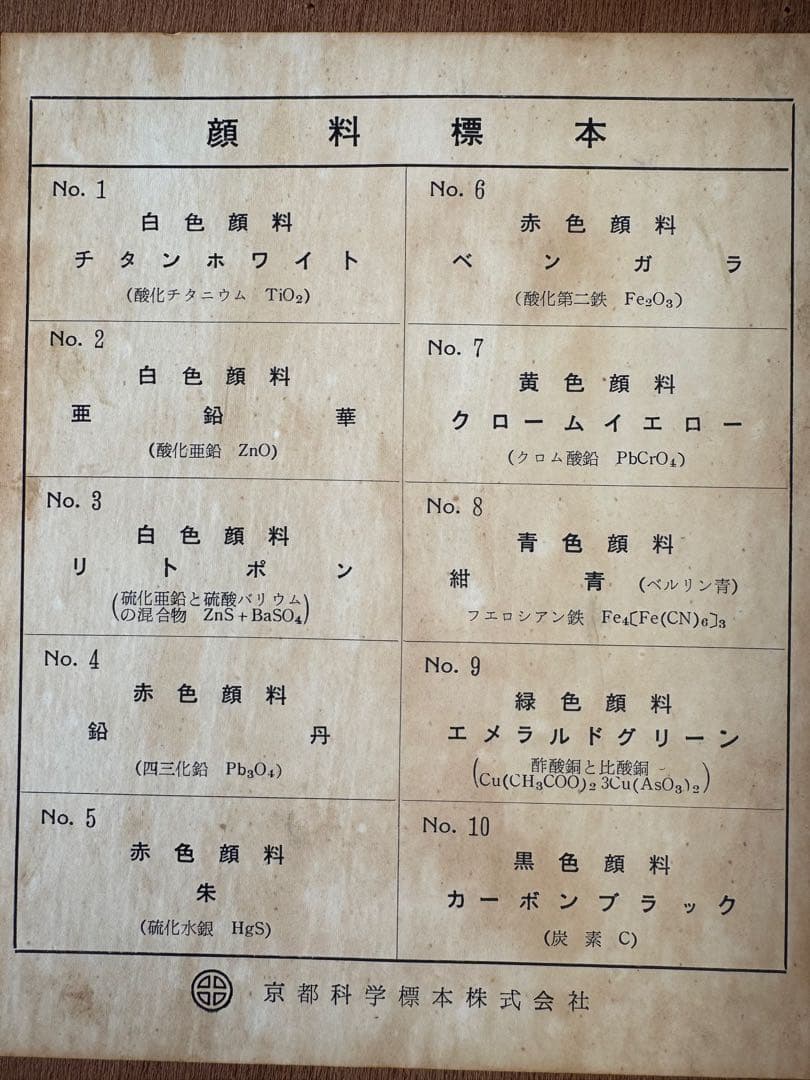 顔料標本
No. 1
白色顔料
チタンホワイト
(酸化チタニウム TiO₂)
No. 2
白色顔料
亜鉛華
(酸化亜鉛 ZnO)
No. 3
白色顔料
リトポン
(硫化亜鉛と硫酸バリウム
の混合物 ZnS+BaSO₄)
No. 4
赤色顔料
鉛丹
(四三化鉛 Pb₃O₄)
No. 5
赤色顔料
朱
(硫化水銀 HgS)
No. 6
赤色顔料
ベンガラ
(酸化第二鉄 Fe₂O₃)
No. 7
黄色顔料
クロームイエロー
(クロム酸鉛 PbCrO₄)
No. 8
青色顔料
紺青 (ベルリン青)
フエロシアン鉄 Fe₄〔Fe(CN)₆〕₃
No. 9
緑色顔料
エメラルドグリーン
(酢酸銅と比酸銅
Cu(CH₃COO)₂ 3Cu(AsO₃)₂)
No. 10
黒色顔料
カーボンブラック
(炭素 C)
京都科学標本株式会社